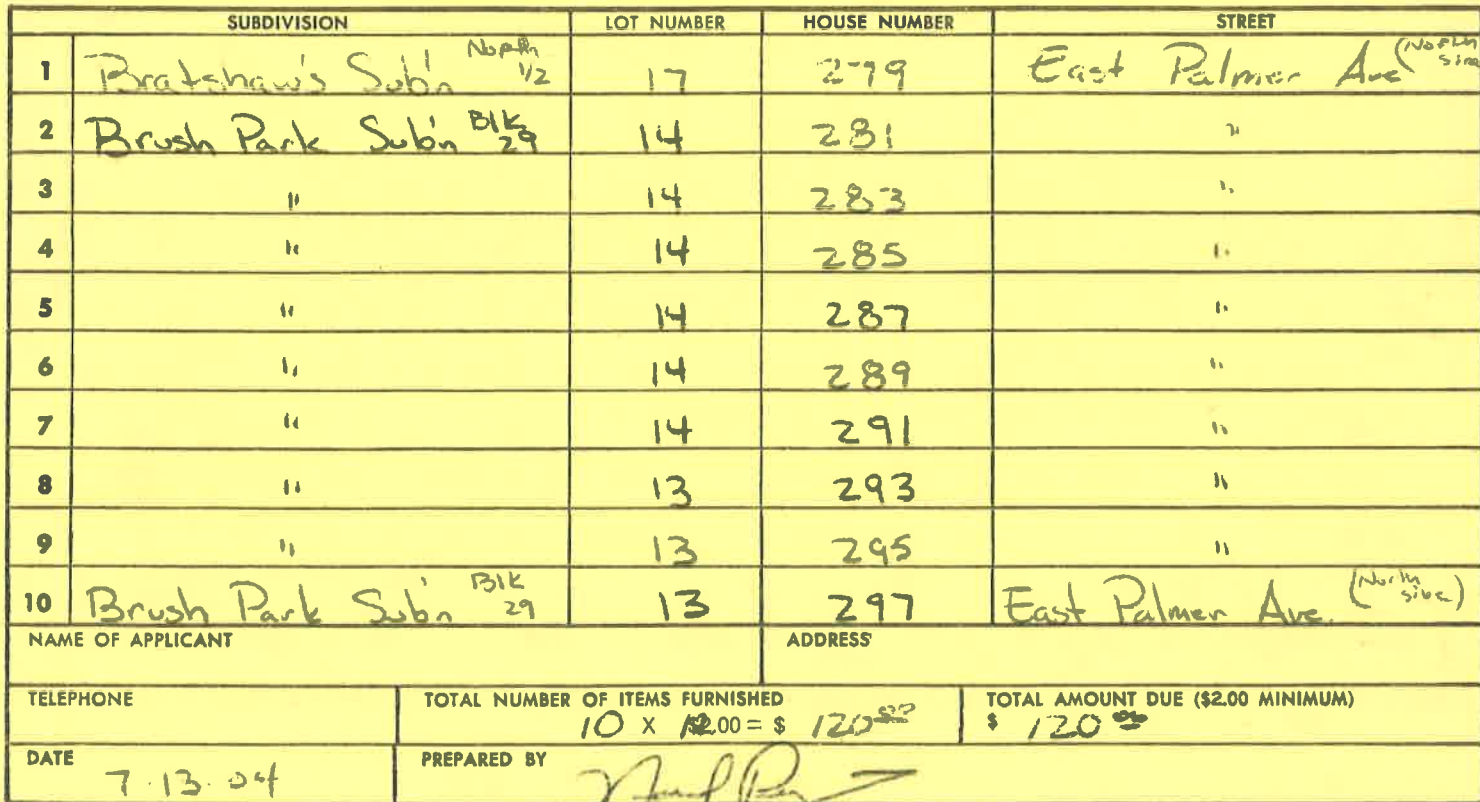 SUBDIVISION LOT NUMBER HOUSE NUMBER STREET
1 Bratshaw's Sub'n North 1/2 17 279 East Palmer Ave (North side
2 Brush Park Sub'n Blk 29 14 281 "
3 " 14 283 "
4 " 14 285 "
5 " 14 287 "
6 " 14 289 "
7 " 14 291 "
8 " 13 293 "
9 " 13 295 "
10 Brush Park Sub'n Blk 29 13 297 East Palmer Ave. (North side)
NAME OF APPLICANT ADDRESS
TELEPHONE TOTAL NUMBER OF ITEMS FURNISHED TOTAL AMOUNT DUE ($2.00 MINIMUM)
10 X 12.00 = $ 120 00 $ 120 00
DATE PREPARED BY
7.13.04